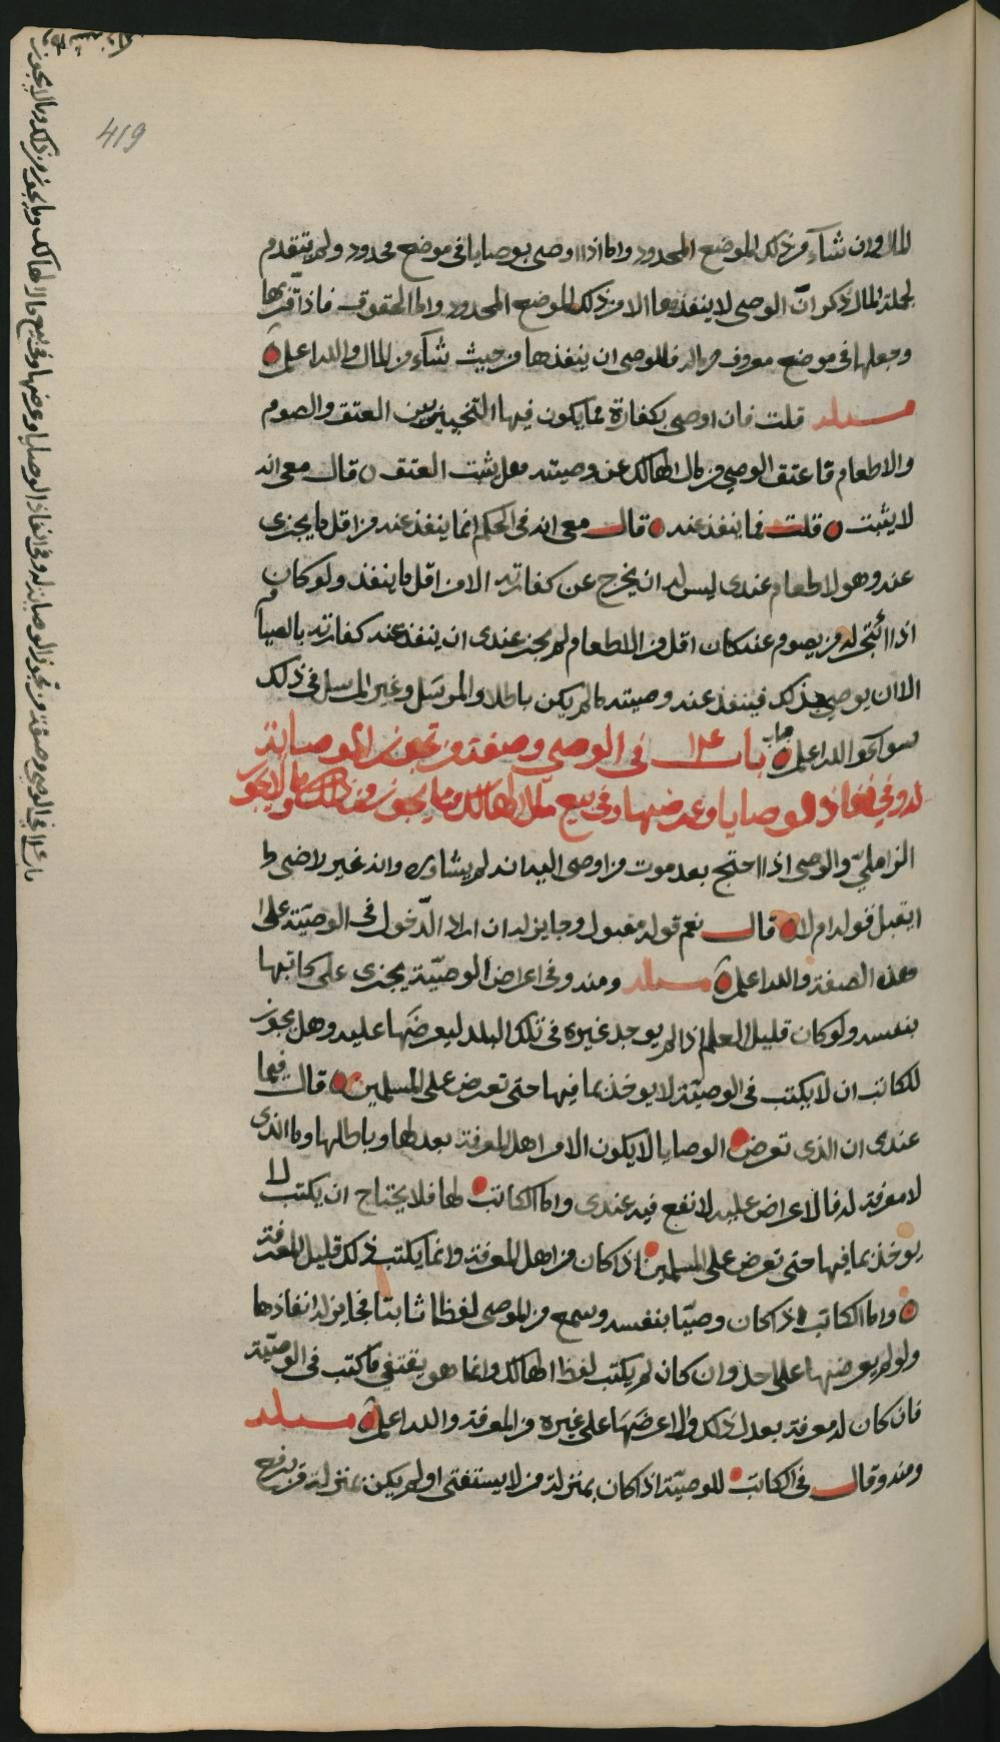 419
المال وان شآء من ذلك الموضع المحدود واما اذا اوصى بوصايا في موضع محدود ولم يتقدم
لجملة المال ذكر انّ الوصى لا ينفذها الا من ذلك الموضع المحدود واما الحقوق فاذا اقر بها
وجعلها في موضع معروف من ماله فللوصى ان ينفذها من حيث شآء من المال والله اعلم
مسئلة قلت فان اوصى بكفارة مما يكون فيها التخيير بين العتق والصوم
والاطعام فاعتق الوصي من مال الهالك عن وصيته هل يثبت العتق قال معى انه
لا يثبت قلت فما ينفذ عنه قال معى انه في الحكم انما ينفذ عنه من اقل ما يجزى
عنه وهو الاطعام عندى ليس له ان يخرج عن كفارته الا من اقل ما ينفذ ولو كان
اذا اتجر له من يصوم عنه كان اقل من الاطعام لم يجز عندى ان ينفذ عنه كفارته بالصيام
الا ان يوصى بذلك فينفذ عنه وصيته ما لم يكن باطلا والمرسَل وغير المرسل في ذلك
سوآء والله اعلم باب في الوصي وصفته ومن تجوز الوصاية
له وفي انفاذ الوصايا وعرضها وفي بيع مال الهالك وما يجوز من ذلك وما لا يجوز
الزامليّ والوصى اذا احتج بعد موت من اوصى اليه انه لم يشاوره وانه غير راضى
ايقبل قوله ام لا قال نعم قوله مقبول وجايز له ان اراد الدّخول في الوصيّة على
هذه الصفة والله اعلم مسئلة ومنه وفي اعراض الوصيّة يجزى على كاتبها
بنفسه ولو كان قليل العلم اذا لم يوجد غيره في تلك البلد ليعرضَها عليه وهل يجوز
للكاتب ان لا يكتب في الوصيّة لا يوخذ بما فيها حتى تعرض على المسلمين قال فيما
عندى ان الذى تعرض الوصايا لا يكون الا من اهل المعرفة بعدلها وباطلها واما الذى
لا معرفة له فالاعراض عليه لا نفع فيه عندى واما الكاتب لها فلا يحتاج ان يكتب لا
يوخذ بما فيها حتى تعرض على المسلمين اذا كان من اهل المعرفة وانما يكتب ذلك قليل المعرفة
واما الكاتب اذا كان وصيّا بنفسه وسمع من الموصى لفظا ثابتا فجايز له انفاذها
ولو لم يعرضها على احد وان كان لم يكتب لفظ الهالك وانما هو يقتفي ما كتب في الوصيّة
فان كان له معرفة بعدل ذلك والا اعرضَهَا على غيره من المعرفة والله اعلم مسئلة
ومنه وقال في الكاتب للوصيّة اذا كان بمنزلة من لا يستفتى او لم يكن بمنزلة من يرفع